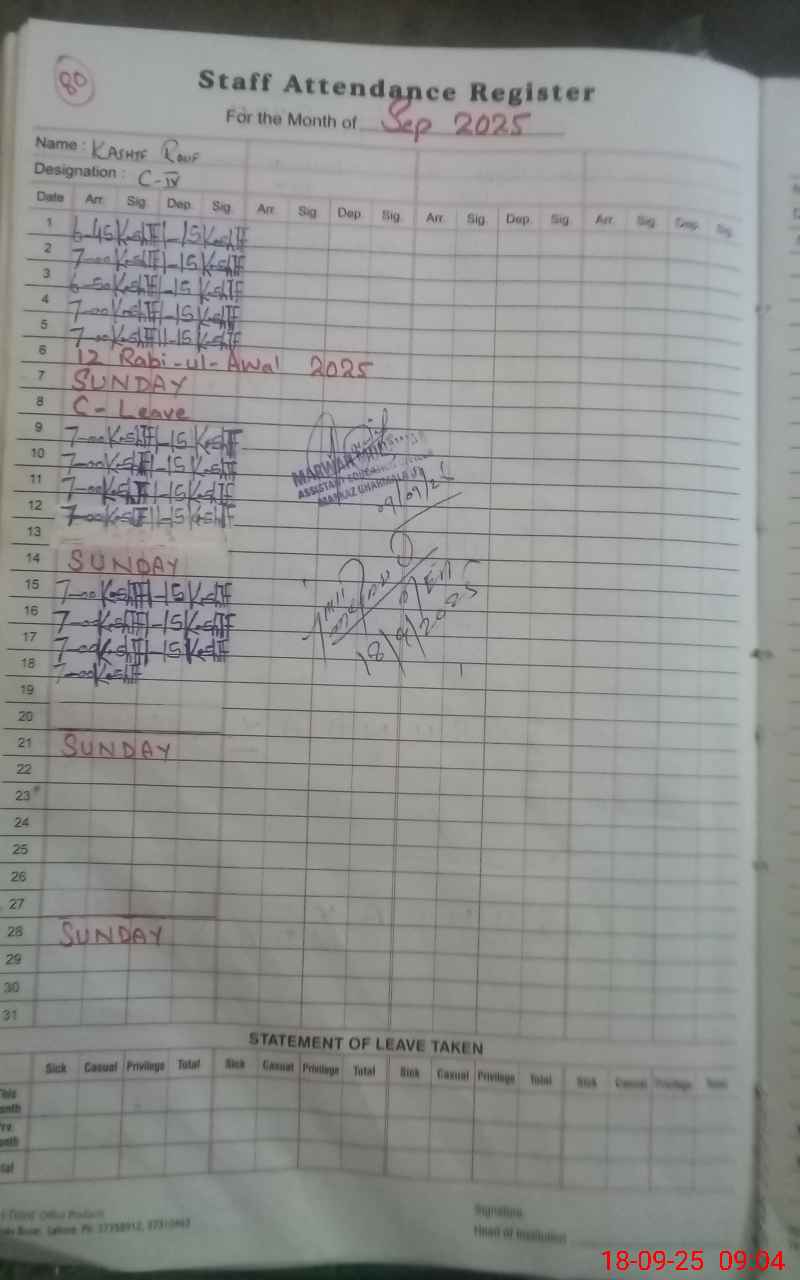 80
Staff Attendance Register
For the Month of Sep 2025
Name : KASHIF ROUF
Designation : C-IV
Date Arr. Sig. Dep. Sig. Arr. Sig. Dep. Sig. Arr. Sig. Dep. Sig. Arr. Sig. Dep. Sig.
1 6-45 KashIF 1-15 KashIF
2 7-00 KashIF 1-15 KashIF
3 6-50 KashIF 1-15 KashIF
4 7-00 KashIF 1-15 KashIF
5 7-00 KashIF 11-15 KashIF
6 12 Rabi-ul-Awal 2025
7 SUNDAY
8 C- Leave
9 7-00 KashIF 1-15 KashIF
10 7-00 KashIF 1-15 KashIF
11 7-00 KashIF 1-15 KashIF
12 7-00 KashIF 11-15 KashIF
13
14 SUNDAY
15 7-00 KashIF 1-15 KashIF
16 7-00 KashIF 1-15 KashIF
17 7-00 KashIF 1-15 KashIF
18 7-00 KashIF
19
20
21 SUNDAY
22
23
24
25
26
27
28 SUNDAY
29
30
31
ASSISTANT EDUCATION
09/09/25
18/9/2025
STATEMENT OF LEAVE TAKEN
Sick Casual Privilege Total Sick Casual Privilege Total Sick Casual Privilege Total Sick Casual Privilege Total
Signature
Head of Institution
18-09-25 09:04